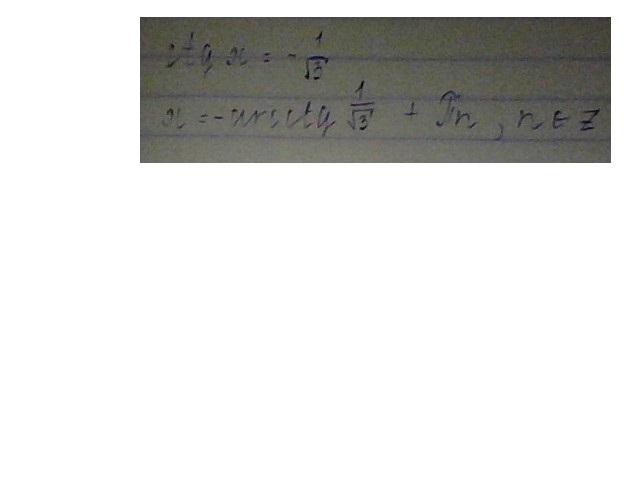 ctg x = - 1/√3
x = - arcctg 1/√3 + πn, n ∈ Z